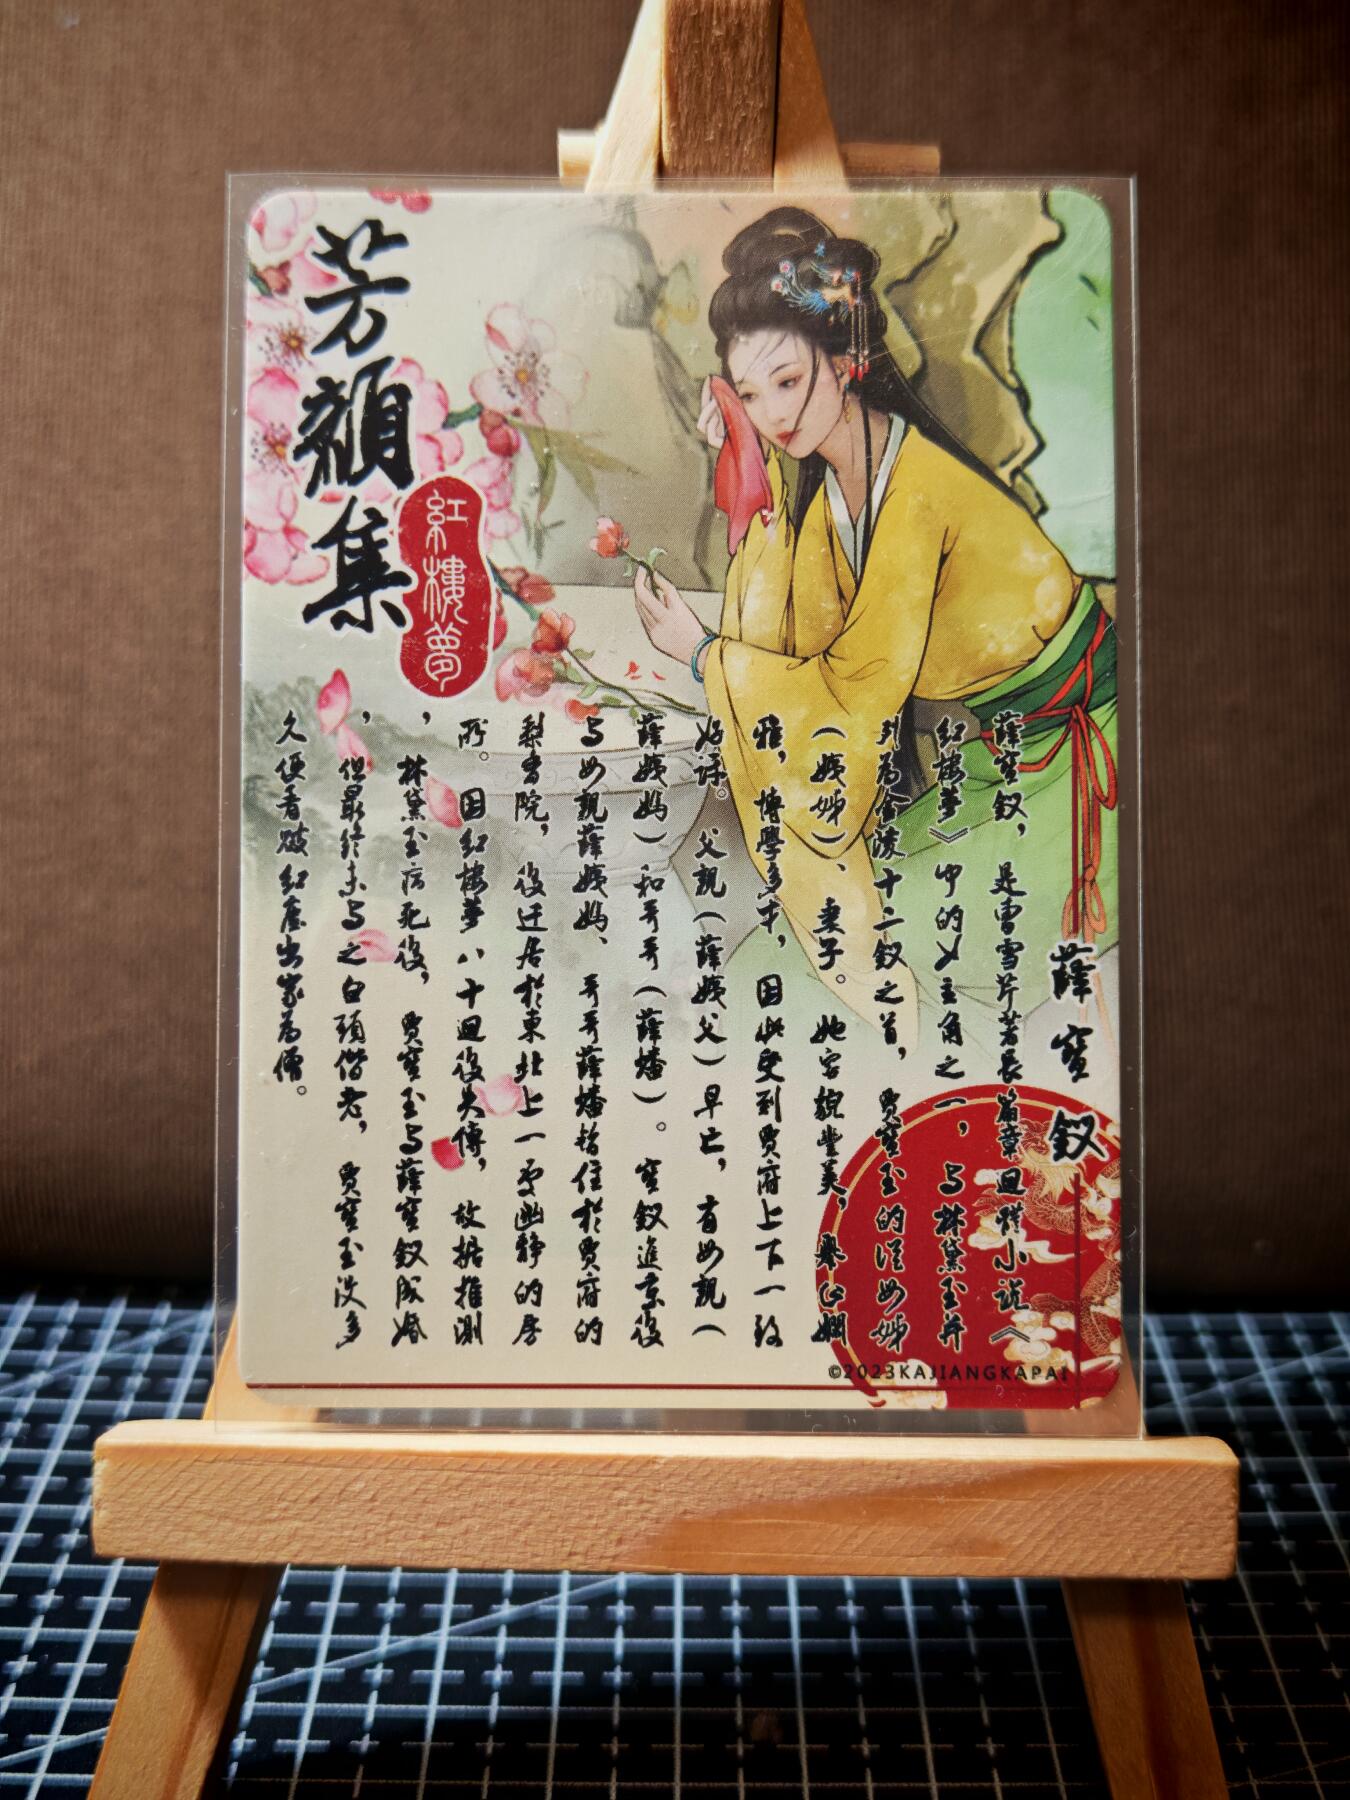 芳顏集
紅樓夢
薛寶釵
薛寶釵，是曹雪芹著長篇章迴體小說《
紅樓夢》中的女主角之一，与林黛玉并
列為金陵十二釵之首，賈寶玉的從母姊
（姨姊）、妻子。她容貌豐美，舉止嫻
雅，博學多才，因此受到賈府上下一致
好評。父親（薛姨父）早亡，有母親（
薛姨媽）和哥哥（薛蟠）。寶釵進京後
与母親薛姨媽、哥哥薛蟠暫住於賈府的
梨香院，後迁居於東北上一處幽靜的房
所。因紅樓夢八十迴後失傳，故據推測
，林黛玉病死後，賈寶玉与薛寶釵成婚
，但最終未与之白頭偕老，賈寶玉沒多
久便看破紅塵出家為僧。
©2023KAJIANGKAPAI